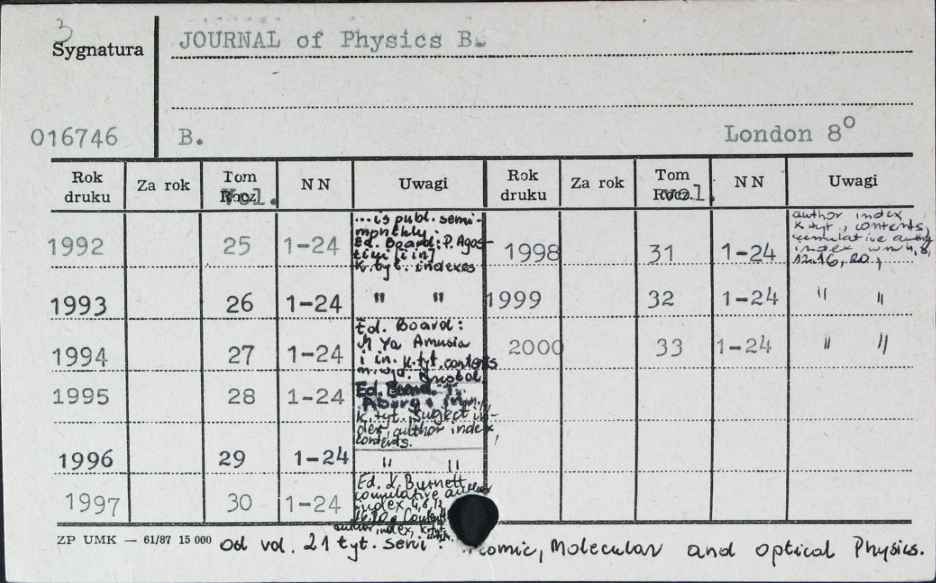 3
Sygnatura
JOURNAL of Physics B.
016746
B.
London 8°
Rok druku Za rok Tom Vol. NN Uwagi Rok druku Za rok Tom Vol. NN Uwagi
1992 25 1-24 ...is publ. semi-
monthly.
Ed. Board: P. Agos-
tini [i in]
k. tyt. indexes
1998 31 1-24 author index,
k. tyt., contents,
cumulative
index w nr 4, 8,
12, 16, 20,
1993 26 1-24 " "
1999 32 1-24 " "
1994 27 1-24 Ed. Board:
M Ya Amusia
i in. k. tyt. contents
Bristol
2000 33 1-24 " "
1995 28 1-24 Ed. Board T.
Aberg i in.
k. tyt. Subject in-
dex, author index,
contents.
1996 29 1-24 " "
1997 30 1-24 Ed. K. Burnett
cumulative
index 4, 8, 12
author index, k. tyt.
ZP UMK — 61/87 15 000
Od vol. 21 tyt. serii: Atomic, Molecular and Optical Physics.